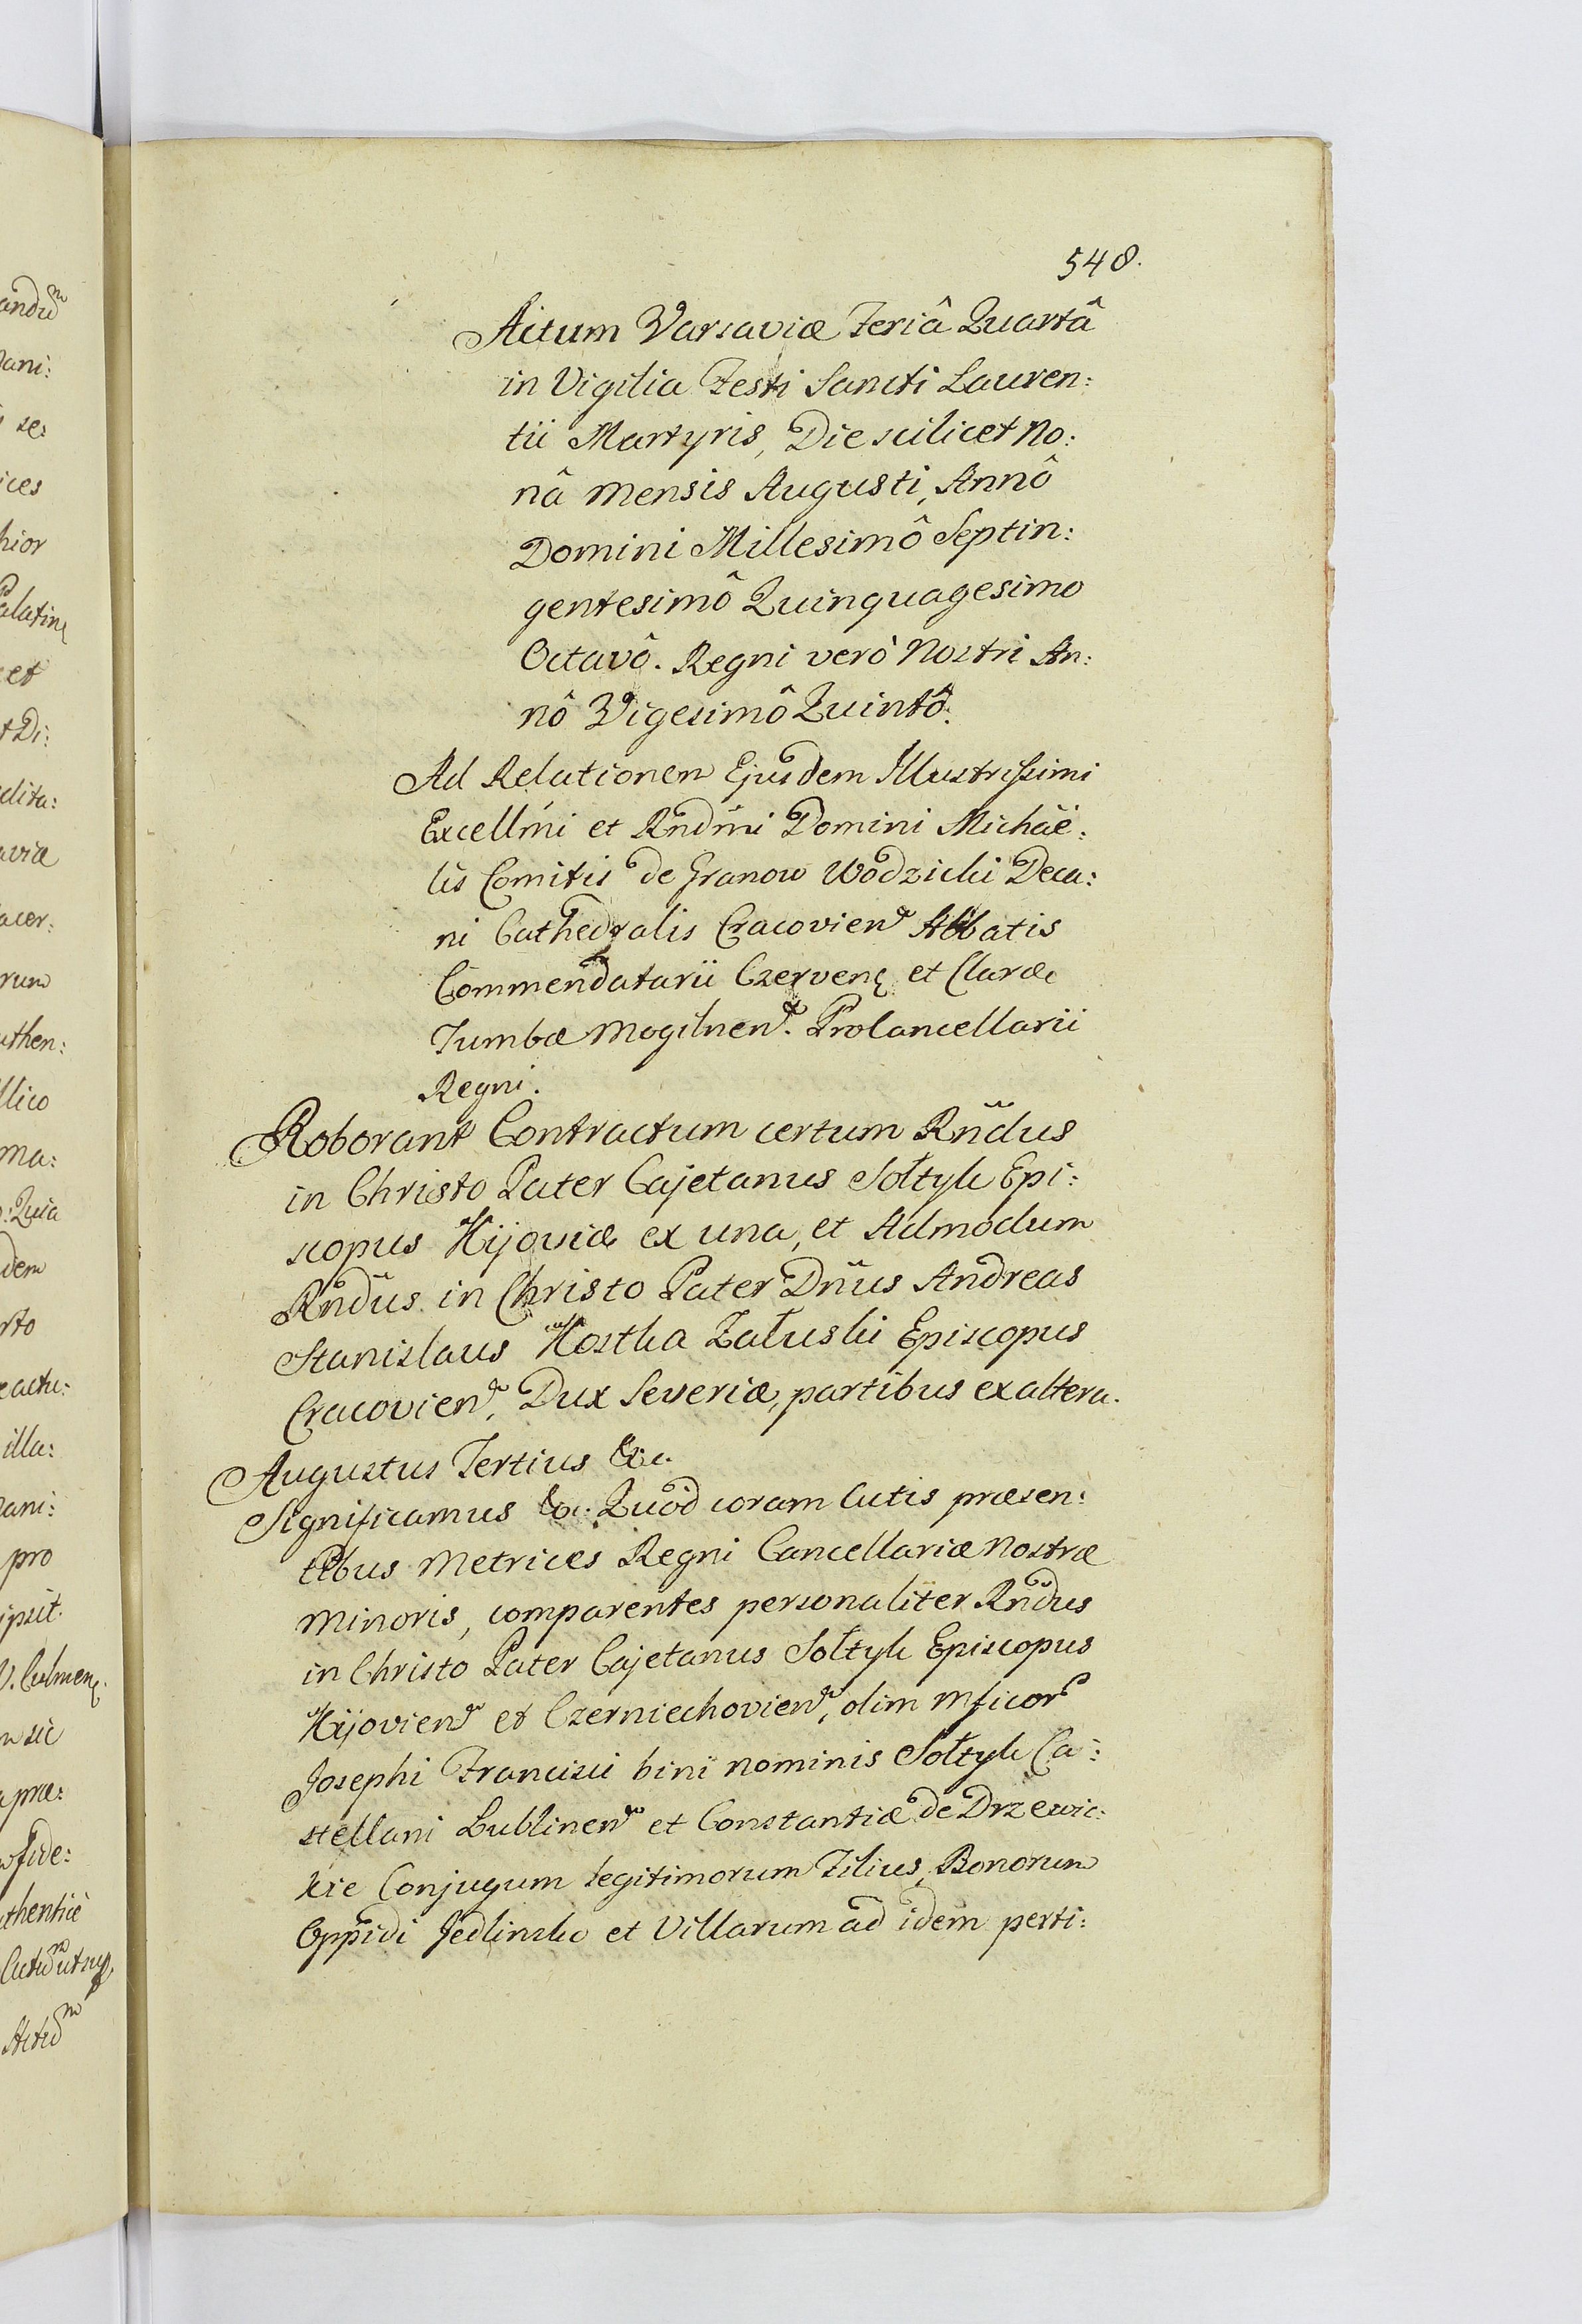 548.
Actum Varsaviæ Feriâ Quartâ
in Vigilia Festi Sancti Lauren:
tii Martyris, Die scilicet No:
nâ Mensis Augusti, Annô
Domini Millesimô Septin:
gentesimô Quinquagesimo
Octavô. Regni verò Nostri An:
nô Vigesimô Quintô.
Ad Relationem Ejusdem Illustrissimi
Excellmi et Rndmi Domini Michaë:
lis Comitis de Granow Wodzicki Deca:
ni Cathedralis Cracovien Abbatis
Commendatarii Czerven et Claræ
Tumbæ Mogilnen. Procancellarii
Regni.
Roborant Contractum certum Rndus
in Christo Pater Cajetanus Sołtyk Epi:
scopus Kijoviæ ex una, et Admodum
Rndus in Christo Pater Dnus Andreas
Stanislaus Kostka Załuski Episcopus
Cracovien, Dux Severiæ, partibus ex altera.
Augustus Tertius &c.
Significamus &c. Quòd coram Actis præsen:
tibus Metrices Regni Cancellariæ Nostræ
Minoris, comparentes personaliter Rndus
in Christo Pater Cajetanus Sołtyk Episcopus
Kijovien et Czerniechovien, olim Mficor
Josephi Francisci bini nominis Sołtyk Ca:
stellani Lublinen et Constantiæ de Drzewic:
kie Conjugum legitimorum Filius, Bonorum
Oppidi Jedlinsko et Villarum ad idem perti: